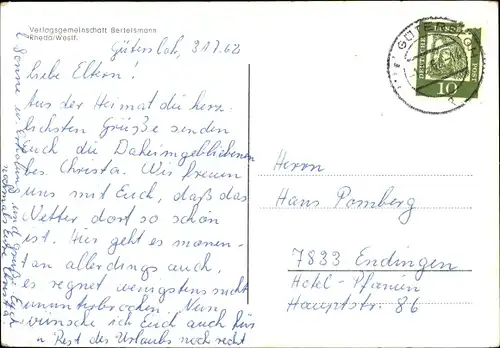 Verlagsgemeinschaft Bertelsmann
Rheda/Westf.
Gütersloh, 31.7.62
Liebe Eltern!
Aus der Heimat die herz-
lichsten Grüße senden
Euch die Daheimgebliebenen
bes. Christa. Wir freuen
uns mit Euch, daß das
Wetter dort so schön
ist. Hier geht es momen-
tan allerdings auch,
es regnet wenigstens nicht
ununterbrochen. Nun
wünsche ich Euch auch für
d. Rest des Urlaubs noch recht
Sonne u. Erholung und grüße Euch
nochmals Eure Christa
GÜTERSLOH
DEUTSCHE BUNDESPOST
10
Herrn
Hans Pomberg
7833 Endingen
Hotel - Pfauen
Hauptstr. 86